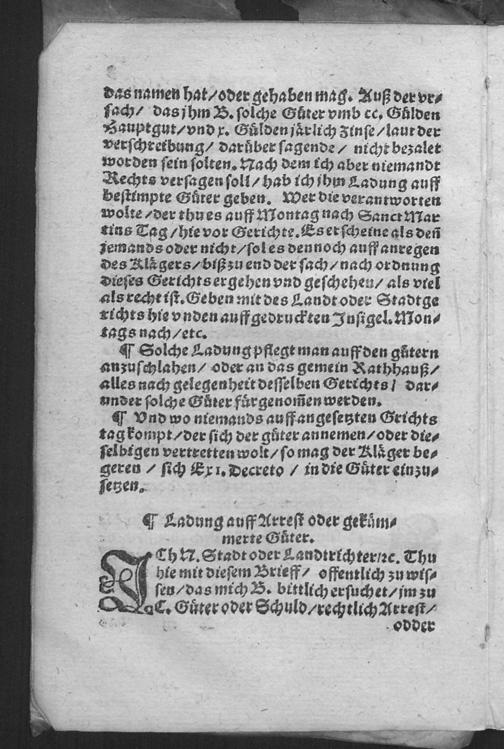 das namen hat/oder gehaben mag. Auß der vr-
sach/ das jhm B. solche Güter vmb cc. Gülden
Hauptgut/vnd x. Gülden järlich Zinse/laut der
verschreibung/ darüber sagende/ nicht bezalet
worden sein solten. Nach dem ich aber niemandt
Rechts versagen soll/hab ich jhm Ladung auff
bestimpte Güter geben. Wer die verantworten
wolte/der thu es auff Montag nach Sanct Mar
tins Tag/hie vor Gerichte. Es erscheine als deñ
jemands oder nicht/sol es dennoch auff anregen
des Klägers/biß zu end der sach/nach ordnung
dieses Gerichts ergehen vnd geschehen/ als viel
als recht ist. Geben mit des Landt oder Stadtge
richts hie vnden auffgedruckten Insigel. Mon-
tags nach/etc.
¶ Solche Ladung pflegt man auff den gütern
anzuschlahen/ oder an das gemein Rathhauß/
alles nach gelegenheit desselben Gerichts/ dar-
under solche Güter fürgenom̃en werden.
¶ Vnd wo niemands auff angesetzten Grichts
tag kompt/der sich der güter annemen/oder die-
selbigen vertretten wolt/so mag der Kläger be-
geren / sich Ex 1. Decreto / in die Güter einzu-
setzen.
¶ Ladung auff Arrest oder geküm-
merte Güter.
ICh N. Stadt oder Landtrichter/ꝛc. Thu
hie mit diesem Brieff/ offentlich zu wis-
sen/das mich B. bittlich ersuchet/jm zu
C. Güter oder Schuld/rechtlich Arrest/
odder